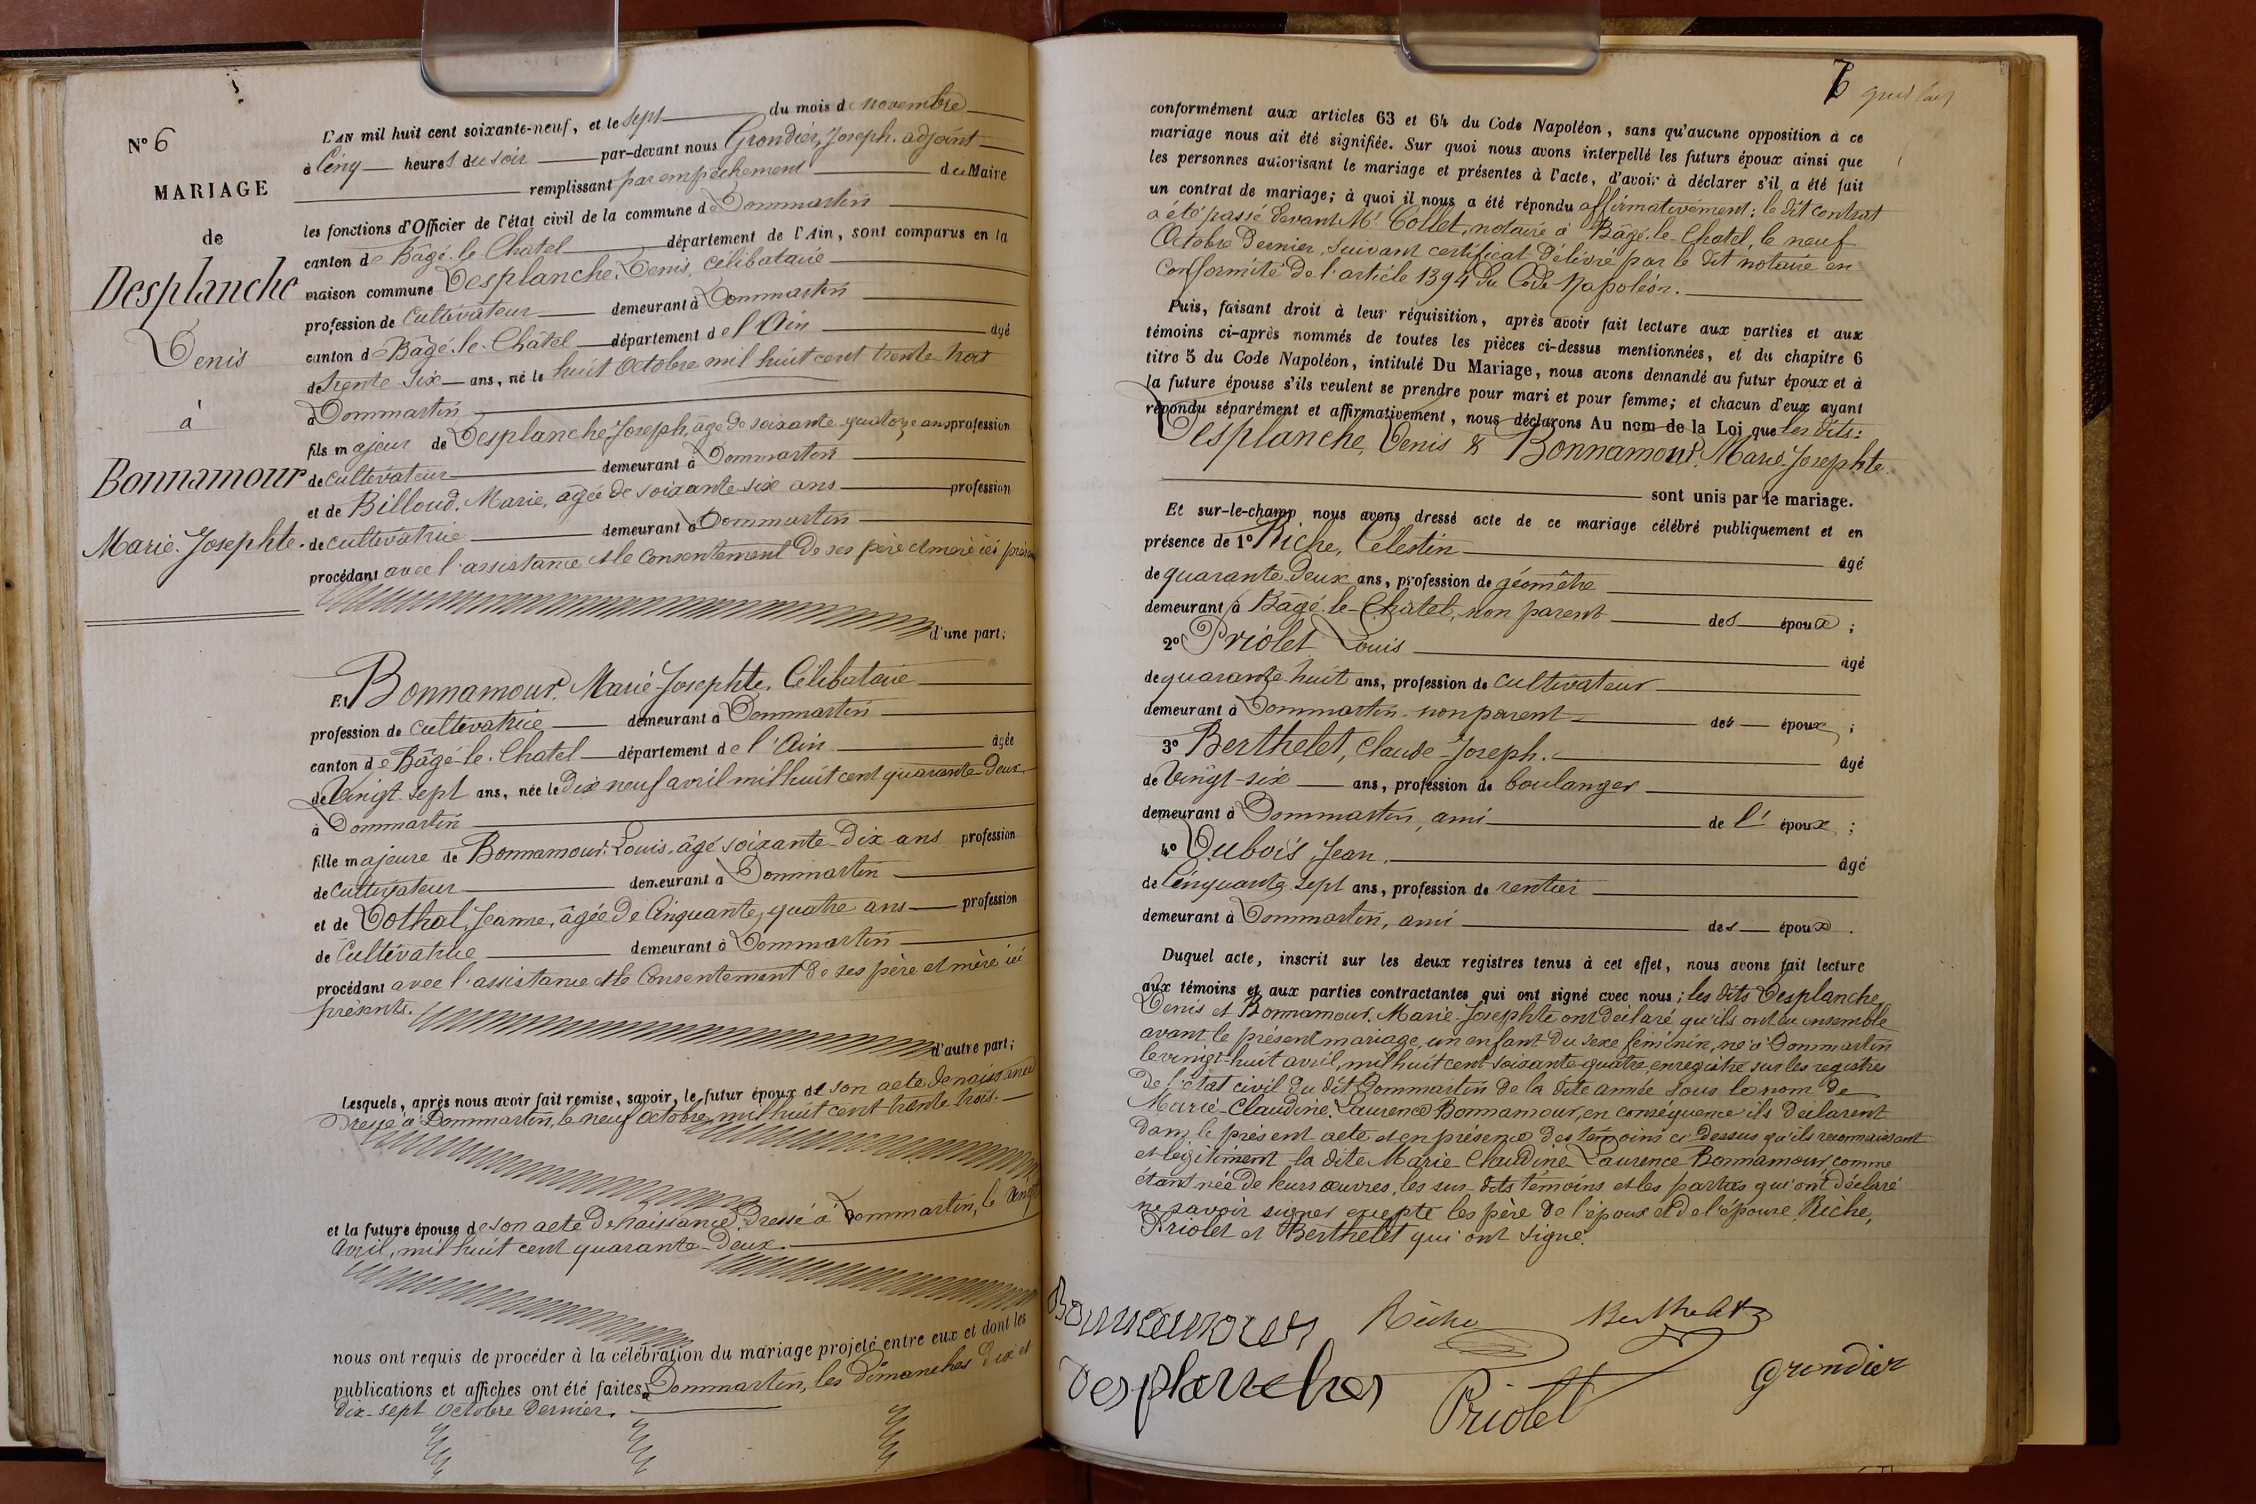 N° 6
MARIAGE
de
Desplanche
Denis
à
Bonnamour
Marie-Josephte.
L'AN mil huit cent soixante-neuf, et le sept du mois de novembre
à Cinq heures du soir par-devant nous Grondier, Joseph. adjoint
remplissant par empêchement du Maire
les fonctions d'Officier de l'état civil de la commune de Dommartin
canton de Bâgé-le-Chatel département de l'Ain, sont comparus en la
maison commune Desplanche, Denis, célibataire
profession de cultivateur demeurant à Dommartin
canton de Bâgé-le-Châtel département de l'Ain âgé
de trente-six ans, né le huit Octobre mil huit cent trente-trois
à Dommartin
fils majeur de Desplanche, Joseph, âgé de soixante-quatorze ans profession
de cultivateur demeurant à Dommartin
et de Billoud, Marie, âgée de soixante-six ans profession
de cultivatrice demeurant à Dommartin
procédant avec l'assistance et le consentement de ses père et mère ici
d'une part;
Et Bonnamour, Marie-Josephte, Célibataire
profession de cultivatrice demeurant à Dommartin
canton de Bâgé-le-Chatel département de l'Ain âgée
de vingt-sept ans, née le dix neuf avril mil huit cent quarante-deux
à Dommartin
fille majeure de Bonnamour, Louis, âgé soixante-dix ans profession
de cultivateur demeurant à Dommartin
et de Jeanne, âgée de Cinquante-quatre ans profession
de Cultivatrice demeurant à Dommartin
procédant avec l'assistance et le Consentement de ses père et mère ici
présents.
d'autre part;
Lesquels, après nous avoir fait remise, savoir, le futur époux de son acte de naissance
Dressé à Dommartin, le neuf Octobre, mil huit cent trente-trois.
et la future épouse de son acte de naissance, Dressé à Dommartin, le vingt
Avril, mil huit cent quarante-deux.
nous ont requis de procéder à la célébration du mariage projeté entre eux et dont les
publications et affiches ont été faites à Dommartin, les dimanches dix et
dix-sept Octobre dernier.
conformément aux articles 63 et 64 du Code Napoléon, sans qu'aucune opposition à ce
mariage nous ait été signifiée. Sur quoi nous avons interpellé les futurs époux ainsi que
les personnes autorisant le mariage et présentes à l'acte, d'avoir à déclarer s'il a été fait
un contrat de mariage; à quoi il nous a été répondu affirmativement; le dit contrat
a été passé devant Me Collet, notaire à Bâgé-le-Chatel, le neuf
Octobre dernier, suivant certificat délivré par le dit notaire en
Conformité de l'article 1394 du Code Napoléon.
Puis, faisant droit à leur réquisition, après avoir fait lecture aux parties et aux
témoins ci-après nommés de toutes les pièces ci-dessus mentionnées, et du chapitre 6
titre 5 du Code Napoléon, intitulé Du Mariage, nous avons demandé au futur époux et à
la future épouse s'ils veulent se prendre pour mari et pour femme; et chacun d'eux ayant
répondu séparément et affirmativement, nous déclarons Au nom de la Loi que les dits:
Desplanche, Denis & Bonnamour, Marie-Josephte.
sont unis par le mariage.
Et sur-le-champ nous avons dressé acte de ce mariage célébré publiquement et en
présence de 1° Riche, Célestin âgé
de quarante-deux ans, profession de géomètre
demeurant à Bâgé-le-Chatel, non parent des époux;
2° Priolet Louis âgé
de quarante-huit ans, profession de cultivateur
demeurant à Dommartin, non parent des époux;
3° Berthelet, Claude-Joseph. âgé
de vingt-six ans, profession de boulanger
demeurant à Dommartin, ami de l'époux;
4° Dubois, Jean, âgé
de Cinquante-sept ans, profession de rentier
demeurant à Dommartin, ami des époux.
Duquel acte, inscrit sur les deux registres tenus à cet effet, nous avons fait lecture
aux témoins et aux parties contractantes qui ont signé avec nous; les dits Desplanche,
Denis et Bonnamour, Marie-Josephte ont déclaré qu'ils ont eu ensemble
avant le présent mariage, un enfant du sexe féminin, né à Dommartin
le vingt-huit avril, mil huit cent soixante-quatre, enregistré sur les registres
de l'état civil du dit Dommartin de la dite année sous le nom de
Marie-Claudine-Laurence Bonnamour, en conséquence ils déclarent
dans le présent acte et en présence des témoins ci-dessus qu'ils reconnaissent
et légitiment la dite Marie-Claudine-Laurence Bonnamour, comme
étant née de leurs œuvres, les sus-dits témoins et les parties qui ont déclaré
ne savoir signer excepté les père de l'époux et de l'épouse, Riche,
Priolet et Berthelet qui ont signé.
Riche Berthelet
Grondier
Priolet